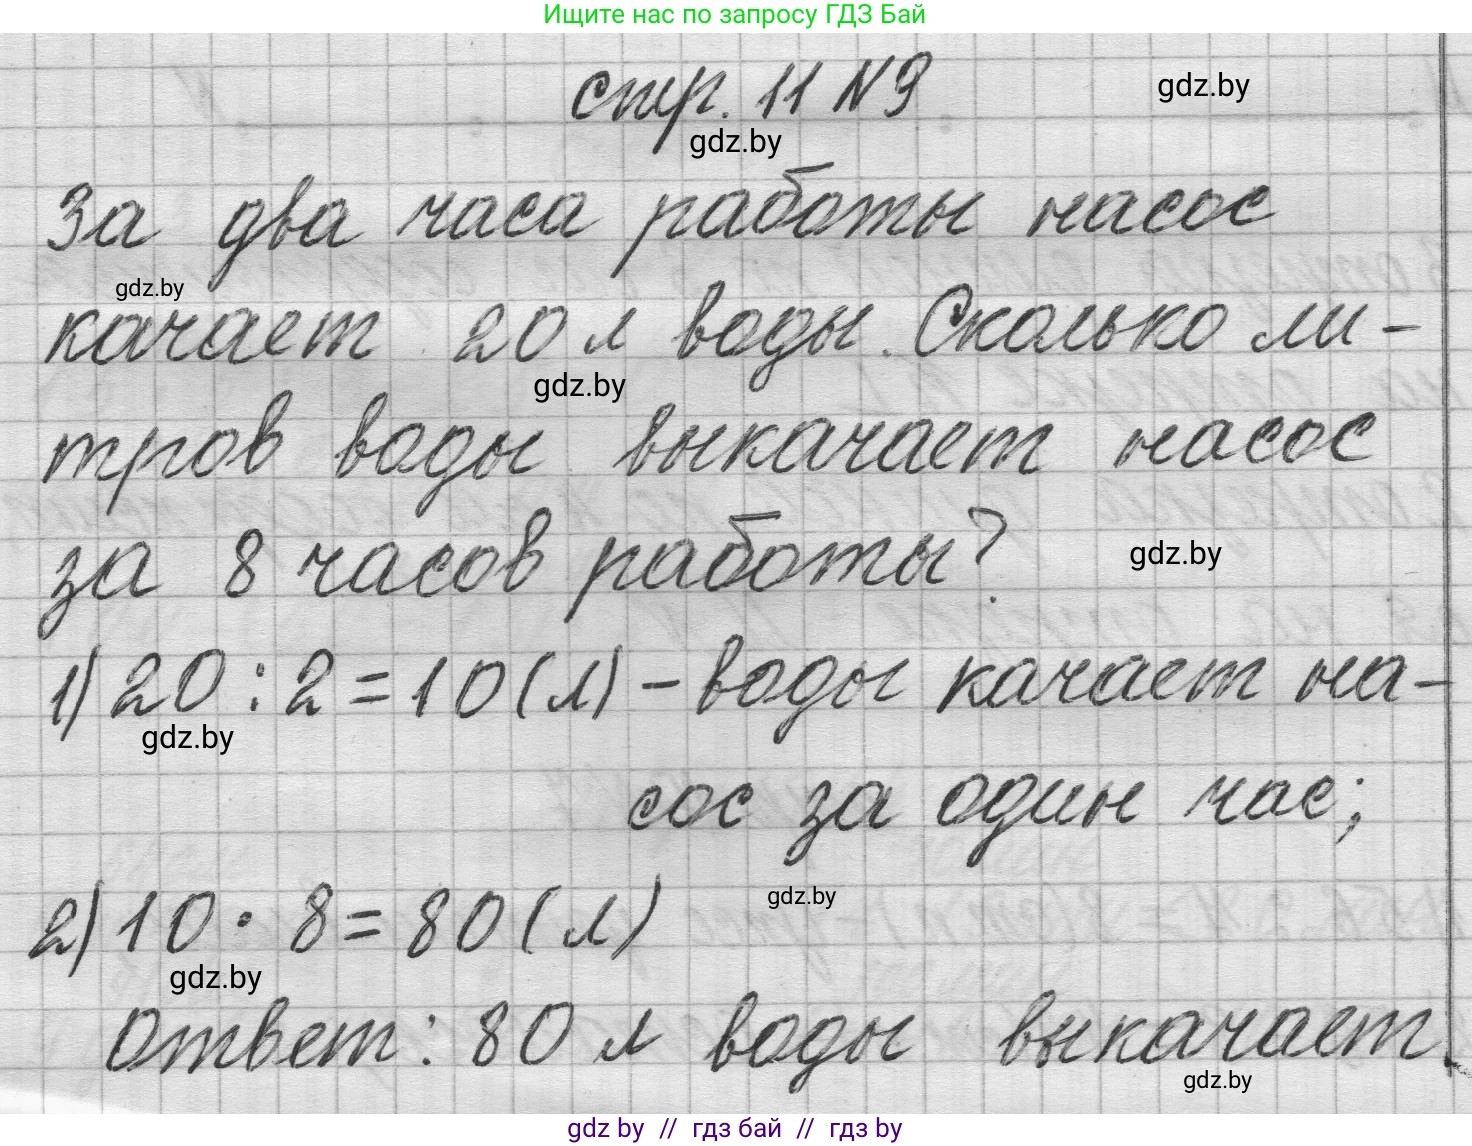 Ищите нас по запросу ГДЗ Бай
стр. 11 №9
gdz.by
gdz.by
За два часа работы насос
gdz.by
качает 20 л воды. Сколько ли-
gdz.by
тров воды выкачает насос
за 8 часов работы?
gdz.by
1) 20 : 2 = 10 (л) - воды качает на-
gdz.by
сос за один час;
gdz.by
2) 10 · 8 = 80 (л)
gdz.by
Ответ: 80 л воды выкачает.
gdz.by
gdz by // гдз бай // гдз by